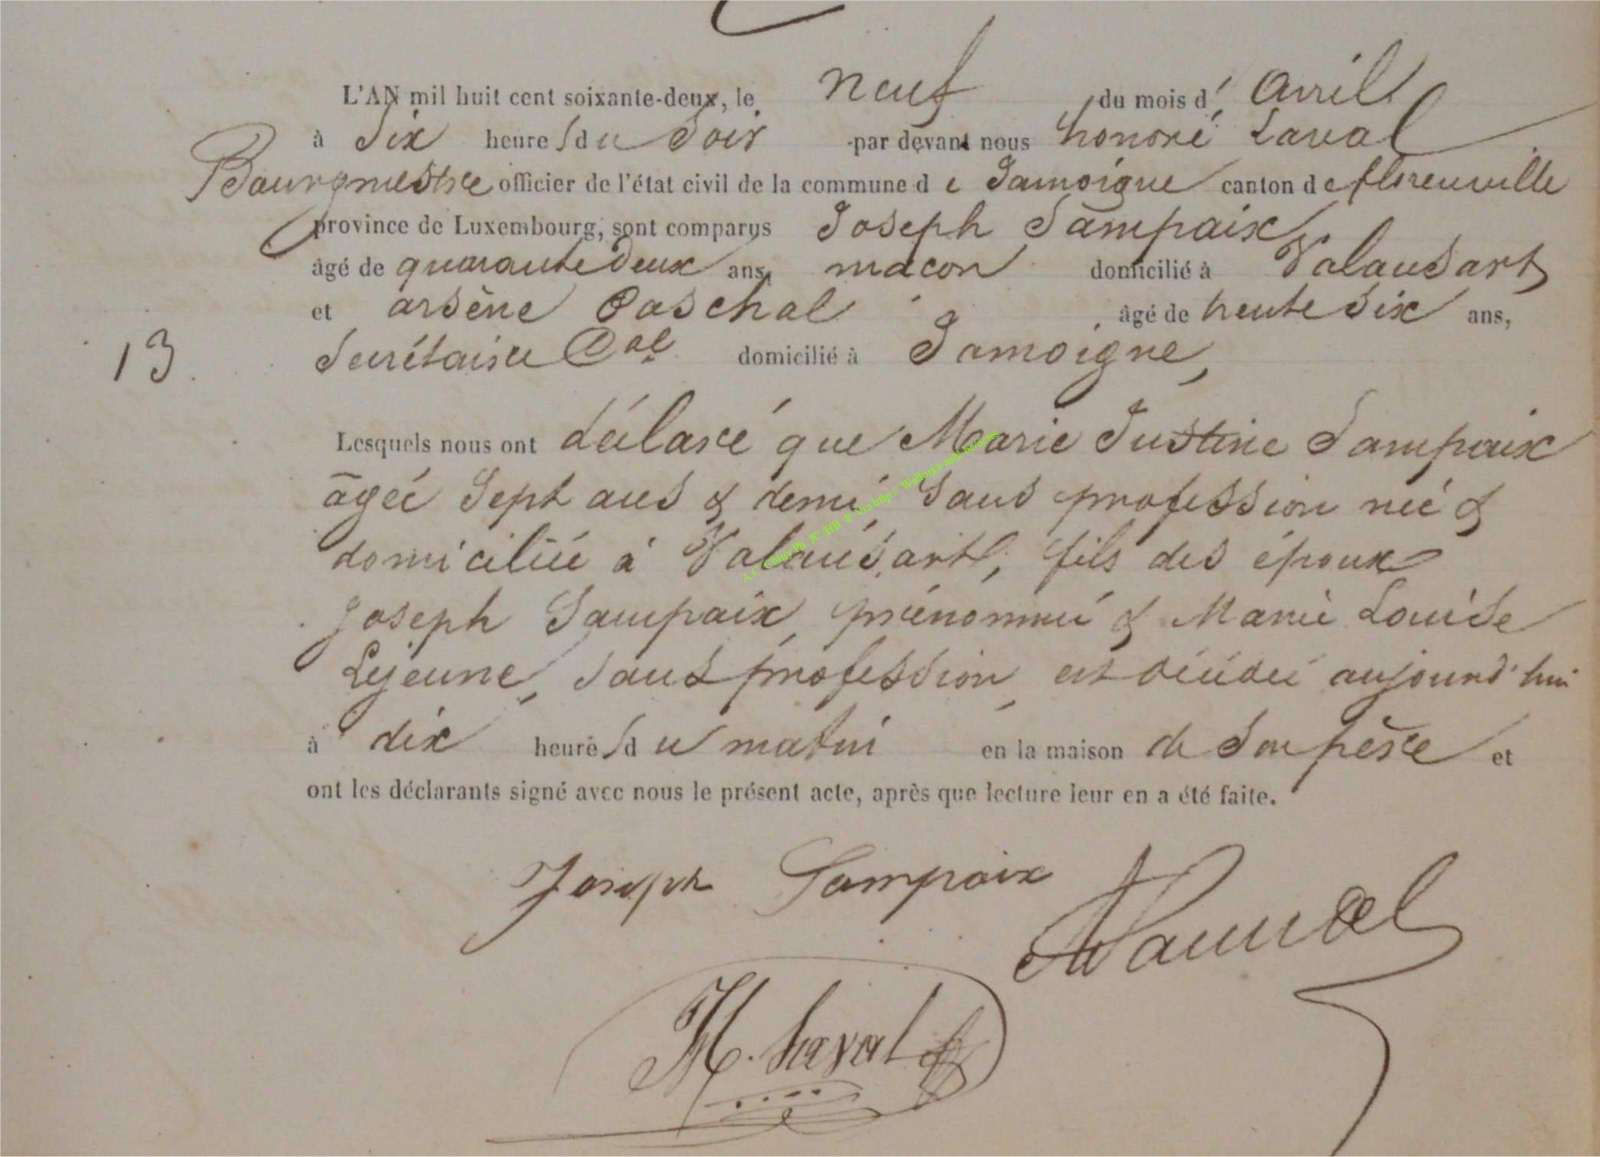 L'AN mil huit cent soixante-deux, le neuf du mois d' avril
à Six heure s du Soir par devant nous honoré Laval
Bourgmestre officier de l'état civil de la commune de Jamoigne canton de florenville
province de Luxembourg, sont comparus Joseph Sampaix
âgé de quarante deux ans, macon domicilié à Valansart
et arsène Paschal âgé de trente Six ans,
Secrétaire Cal domicilié à Jamoigne,
13
Lesquels nous ont déclaré que Marie Justine Sampaix
âgée Sept ans & demi Sans profession née &
domiciliée à Valansart, fils des époux
Joseph Sampaix prénommé & Marie Louise
Lejeune, sans profession, est décédée aujourd'hui
à dix heure s du matin en la maison de Son père et
ont les déclarants signé avec nous le présent acte, après que lecture leur en a été faite.
Joseph Sampaix
H. Laval